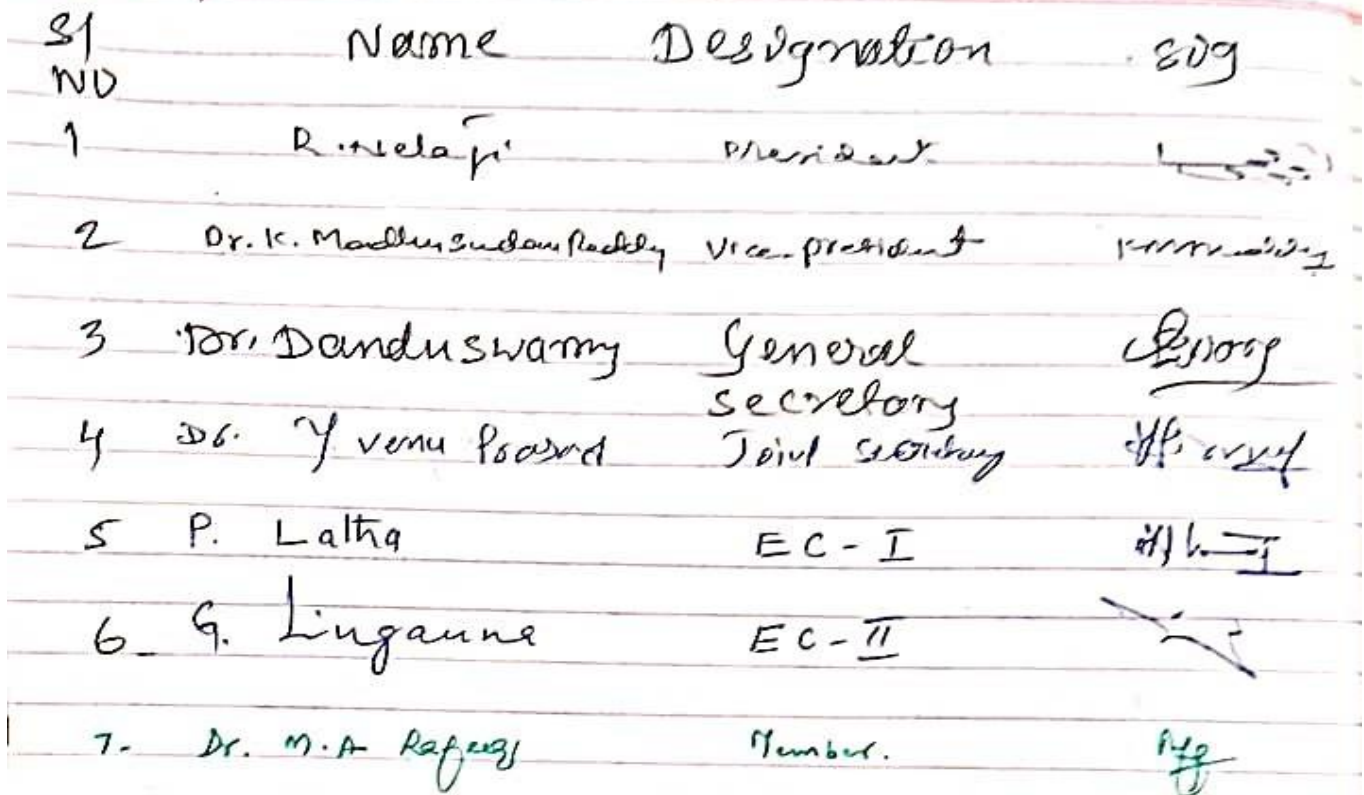 Sl Name Designation sig
No
1 R. president
2 Dr. K. Madhusudan Reddy Vice-president
3 Dr. Danduswamy General
secretary
4 Dr. Y venu Prasad Joint secretary
5 P. Latha EC-I
6 G. Linganna EC-II
7. Dr. M.A Rafeeq Member.